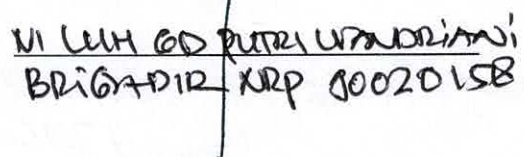 NI LUH GD PUTRI WANDRIANI
BRIGADIR NRP 90020158